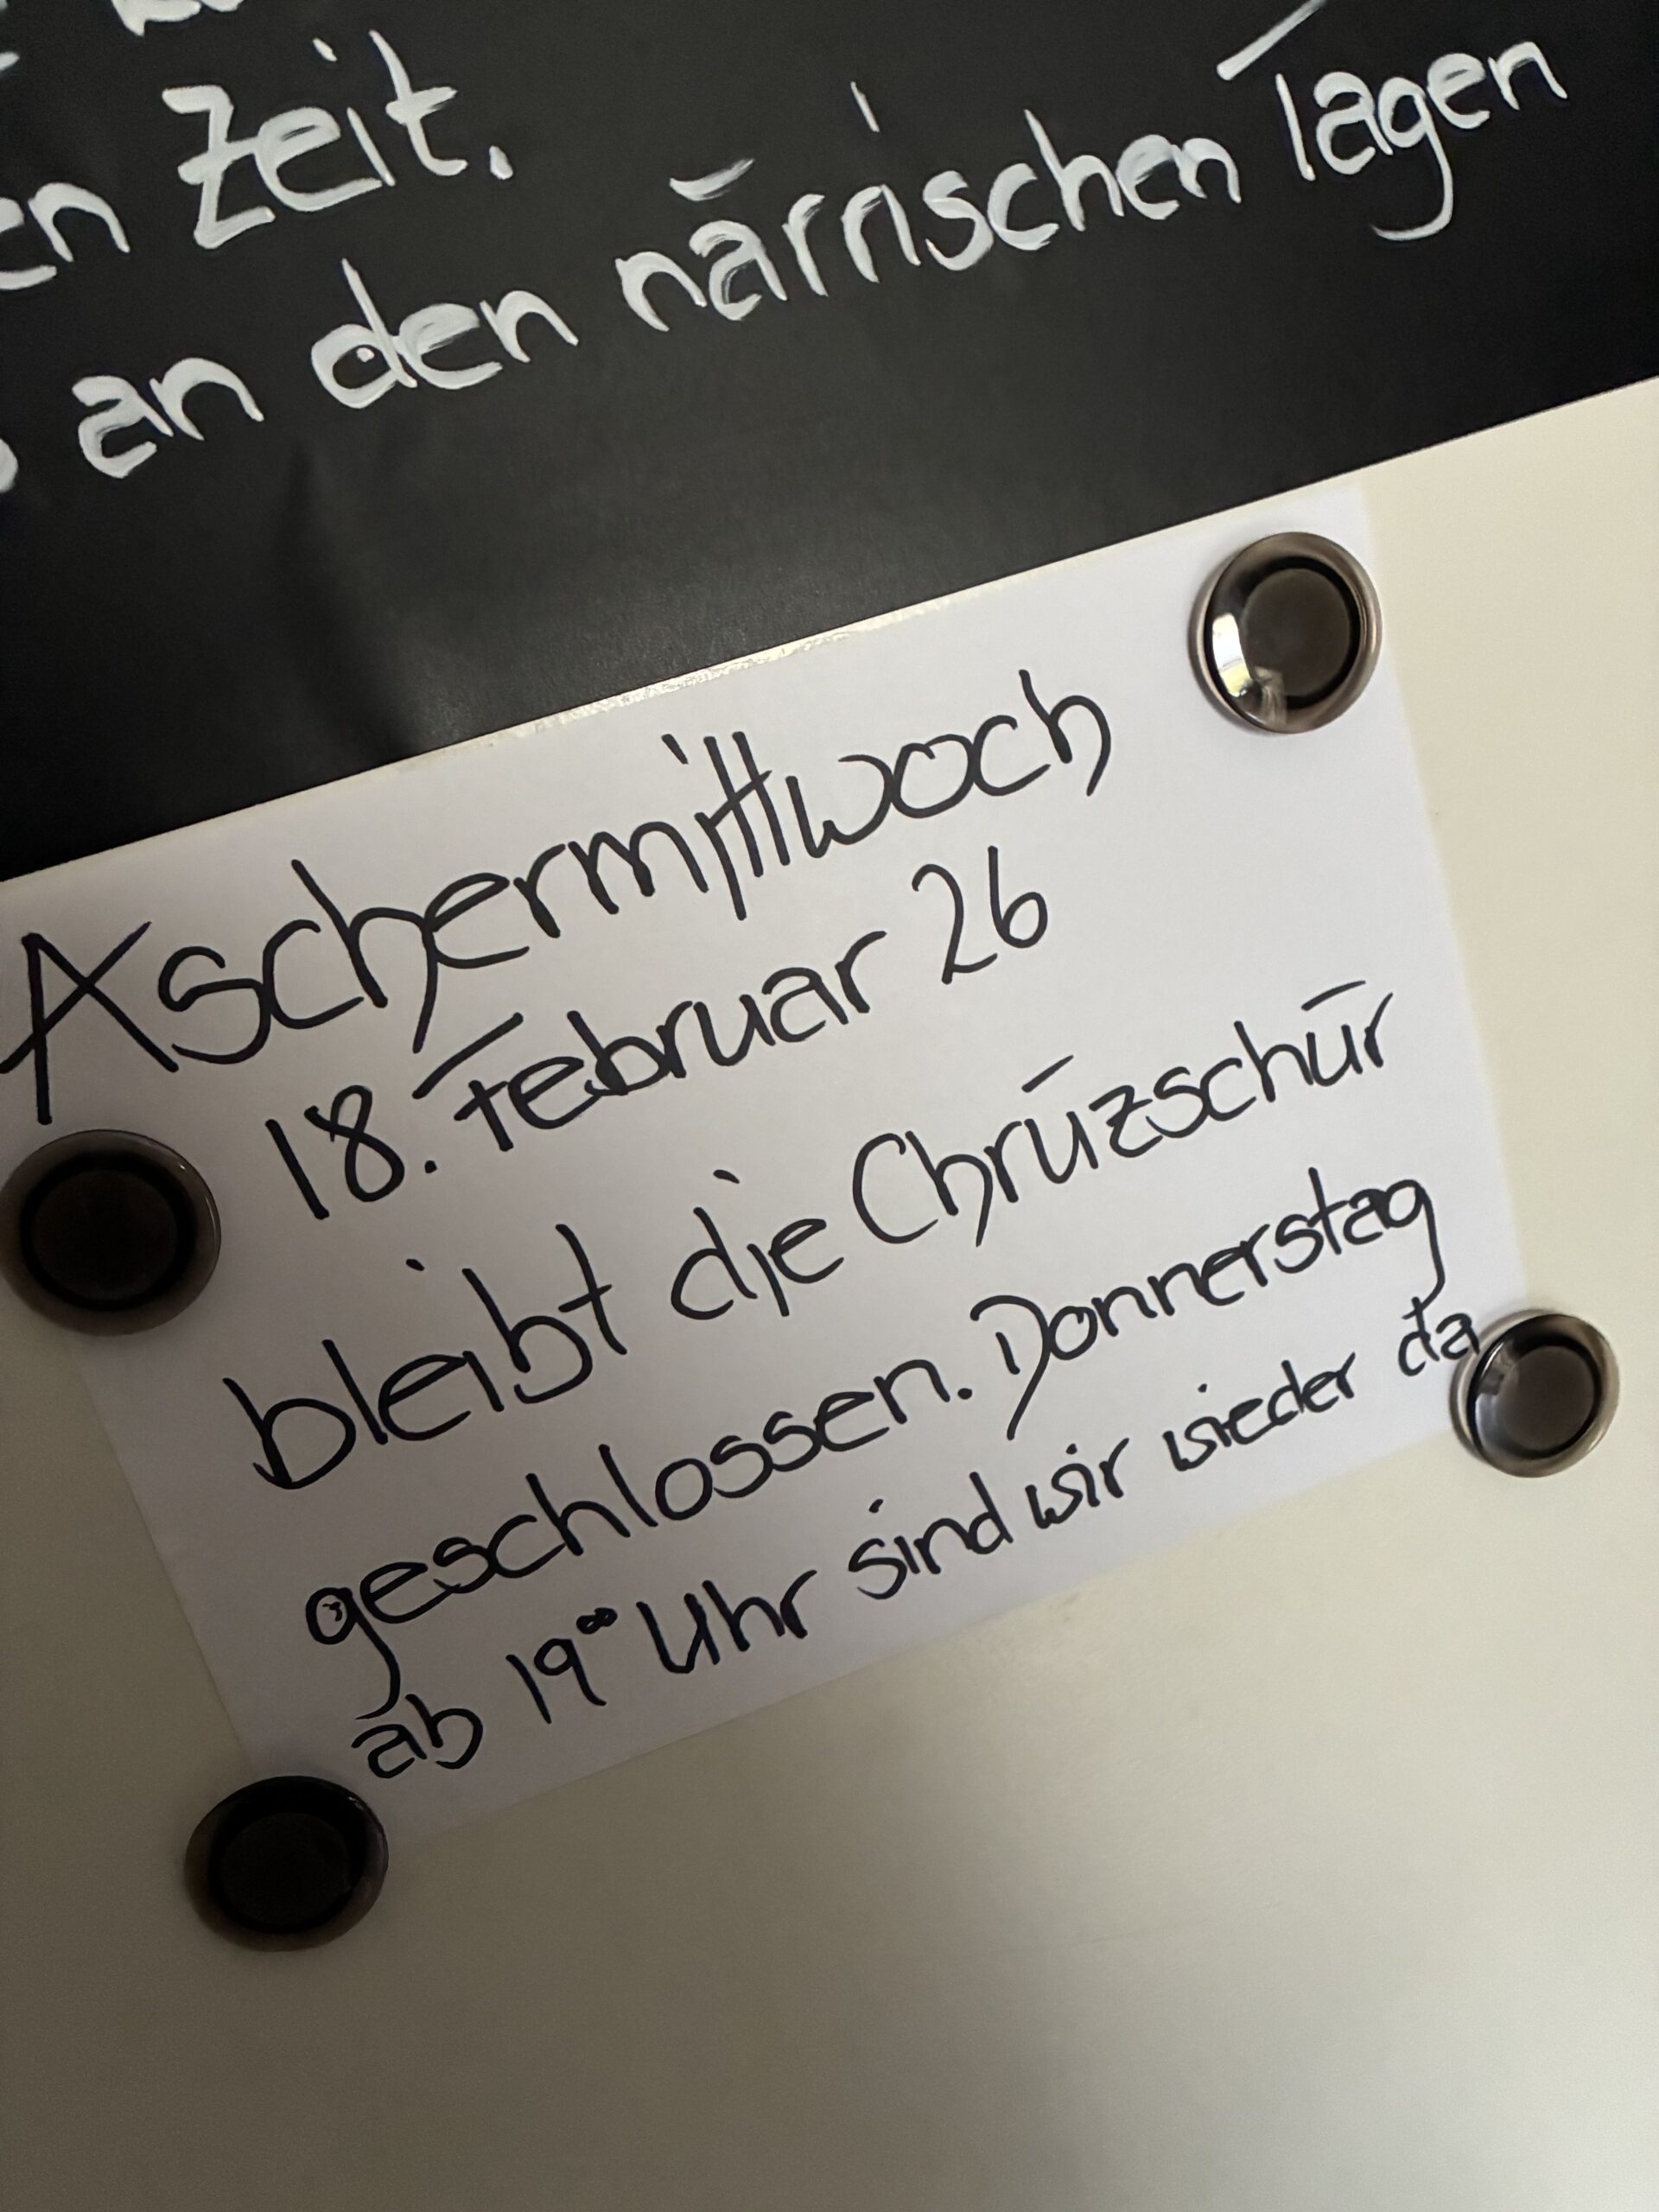 en Zeit.
an den närrischen Tagen
Aschermittwoch
18. Februar 26
bleibt die Chrüzschür
geschlossen. Donnerstag
ab 19⁰⁰ Uhr sind wir wieder da